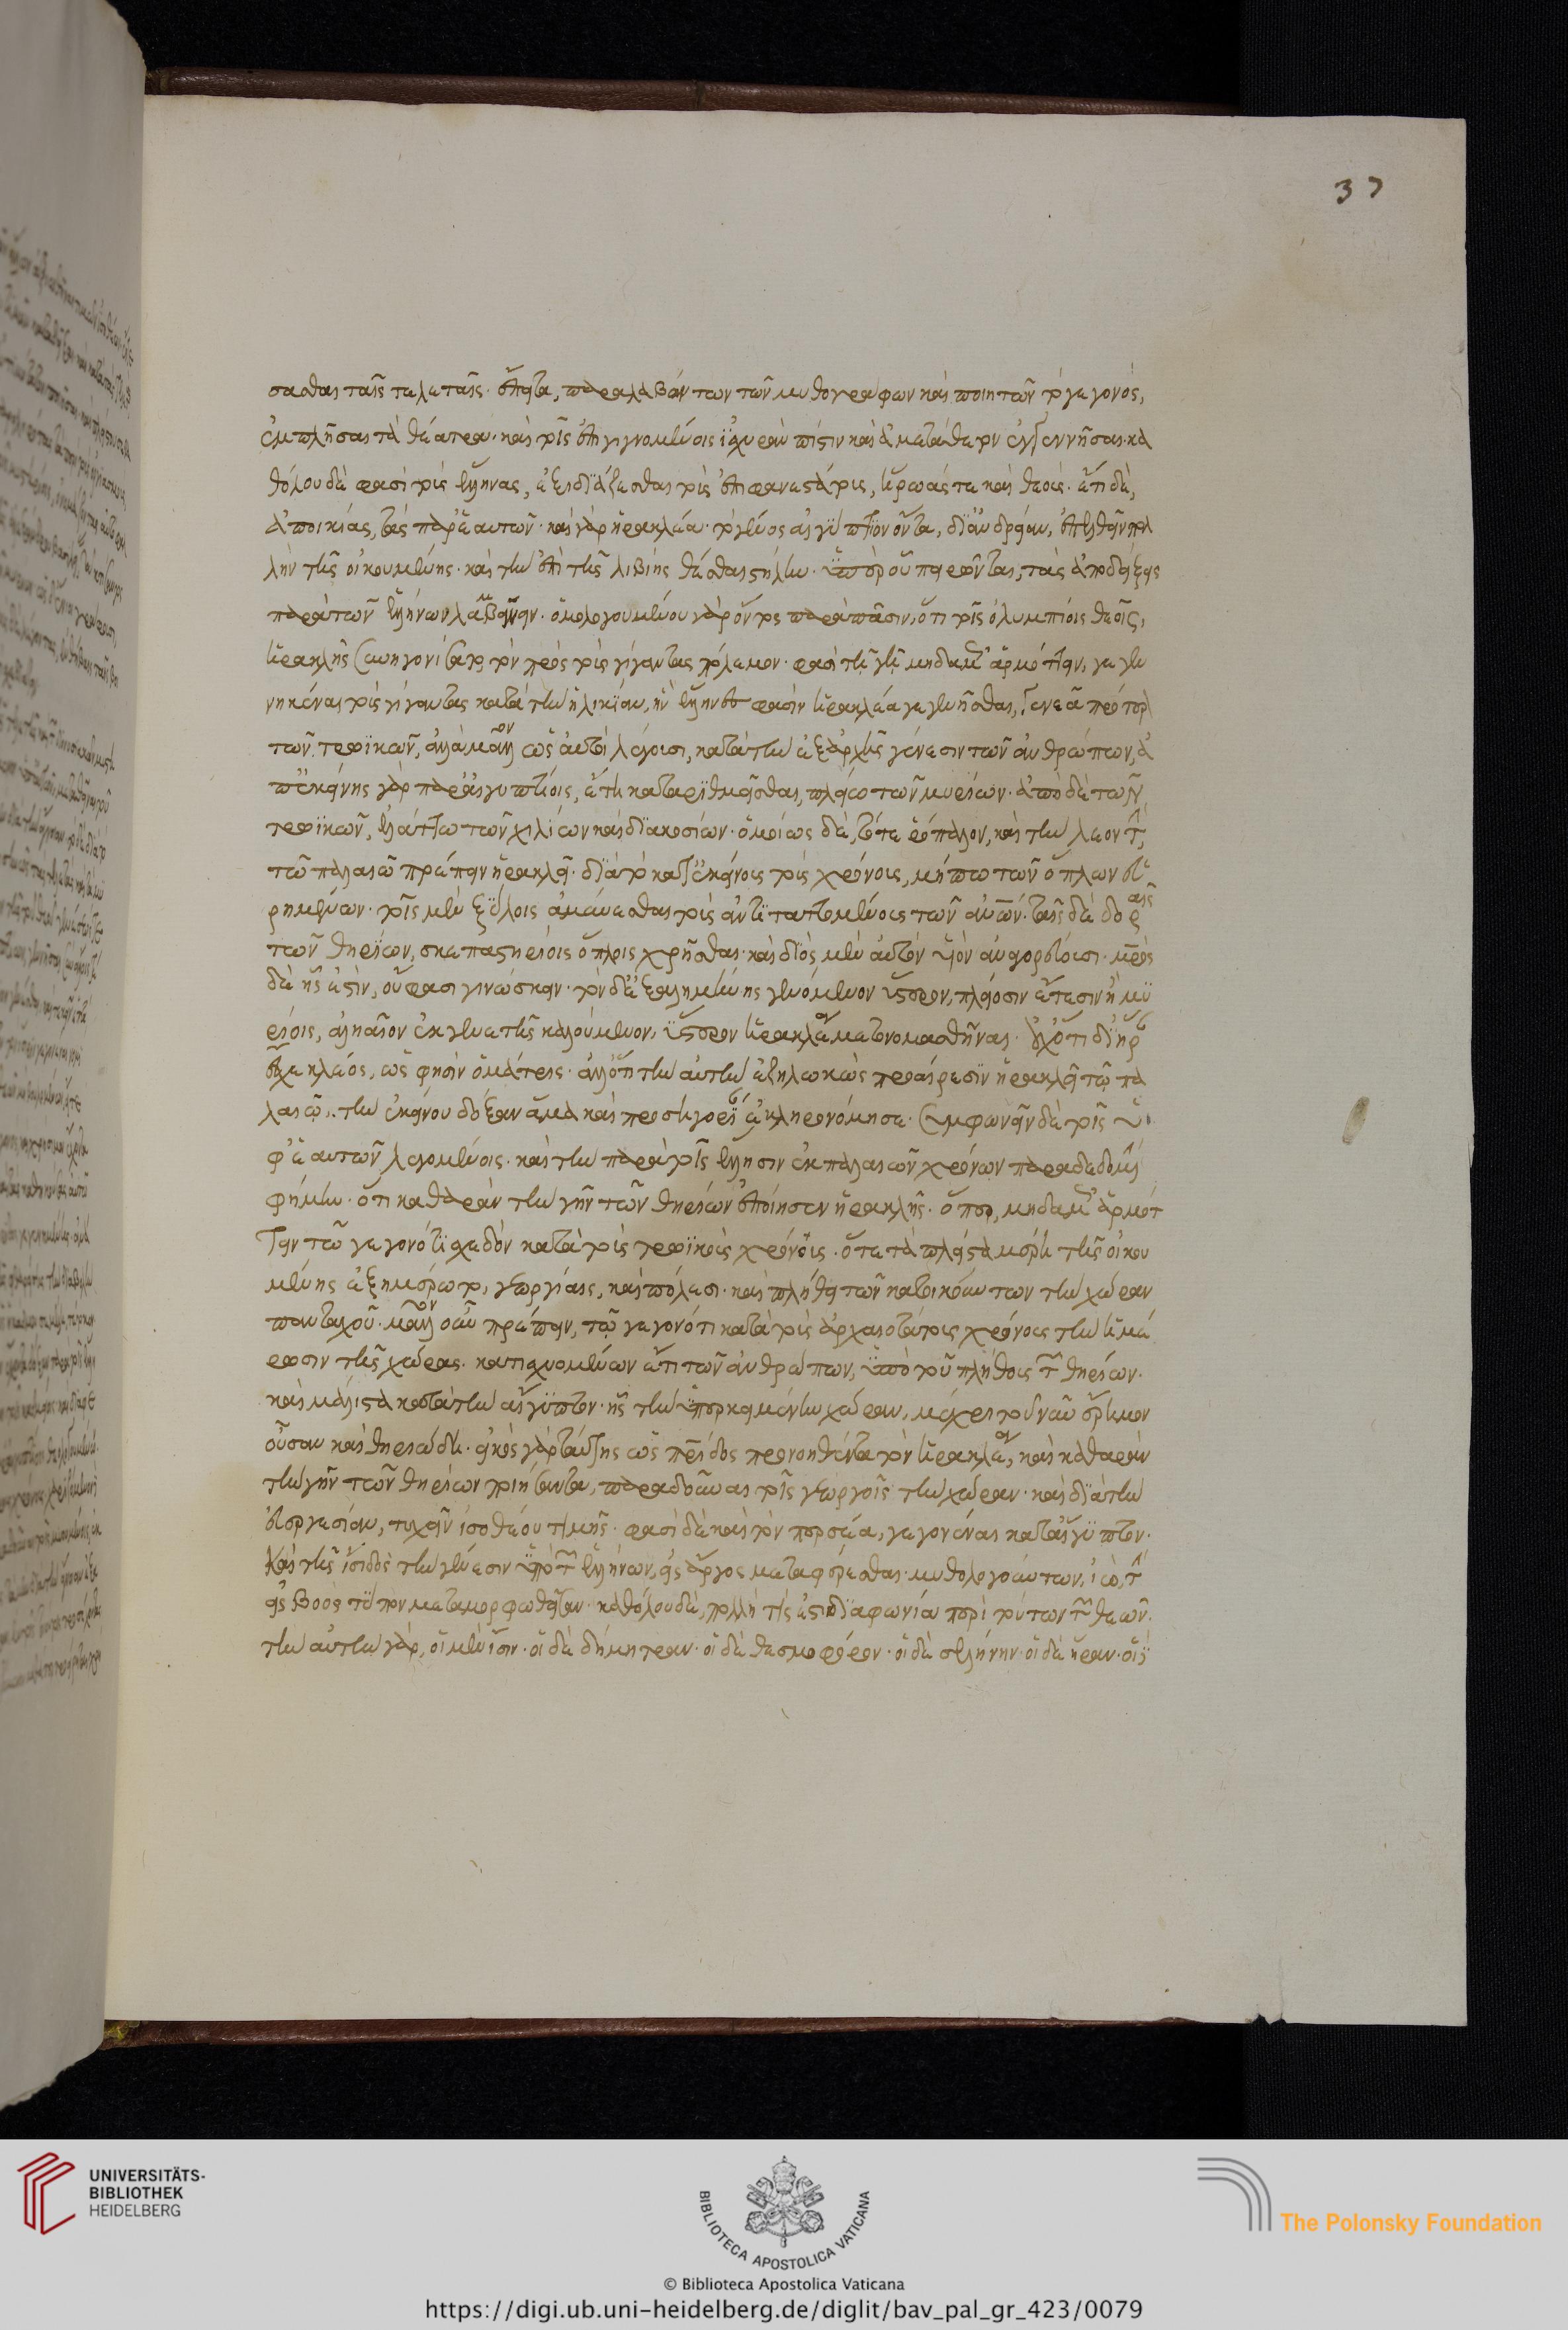 σασθαι ταῖς τελεταῖς· ἔπειτα, παραλαβόντων τῶν μυθογράφων καὶ ποιητῶν τὸ γεγονός,
ἐμπλῆσαι τὰ θέατρα· καὶ τοῖς ἐπιγιγνομένοις ἰσχυρὰν πίστιν καὶ ἀμετάθετον ἐγγεννῆσαι· κα
θόλου δέ φασι τοὺς ἕλληνας, ἐξιδιάζεσθαι τοὺς ἐπιφανεστάτους, ἥρωάς τε καὶ θεούς· ἔτι δὲ,
ἀποικίας, τὰς παρ' ἑαυτῶν· καὶ γὰρ ἡρακλέα· τὸ γένος αἰγύπτιον ὄντα, δι' ἀνδρείαν, ἐπελθεῖν πολ
λὴν τῆς οἰκουμένης· καὶ τὴν ἐπὶ τῆς λιβύης θέσθαι στήλην· ὑπὲρ οὗ πειρῶνται, τὰς ἀποδείξεις
παρὰ τῶν ἑλλήνων λαμβάνειν· ὁμολογουμένου γὰρ ὄντος παρὰ πᾶσιν, ὅτι τοῖς ὀλυμπίοις θεοῖς,
ἡρακλῆς συνηγωνίσατο τὸν πρὸς τοὺς γίγαντας πόλεμον· φασὶ τῇ γῇ μηδαμῶς ἁρμόττειν, γεγεν
νηκέναι τοὺς γίγαντας κατὰ τὴν ἡλικίαν, ἣν ἕλληνές φασιν ἡρακλέα γεγενῆσθαι, γενεᾷ πρότερ
τῶν τρωϊκῶν, ἀλλὰ μᾶλλον ὡς αὐτοὶ λέγουσι, κατὰ τὴν ἐξ ἀρχῆς γένεσιν τῶν ἀνθρώπων, ἀ
π' ἐκείνης γὰρ παρ' αἰγυπτίοις, ἔτη καταριθμεῖσθαι, πλείω τῶν μυρίων· ἀπὸ δὲ τῶν
τρωϊκῶν, ἐλάττω τῶν χιλίων καὶ διακοσίων· ὁμοίως δὲ, τό τε ῥόπαλον, καὶ τὴν λεοντῆν,
τῶ παλαιῶ πρέπειν ἡρακλεῖ· διὰ τὸ κατ' ἐκείνους τοὺς χρόνους, μήπω τῶν ὅπλων εὑ
ρημένων· τοῖς μὲν ξύλοις ἀμύνεσθαι τοὺς ἀντιταττομένους τῶν ἀνθρώπων· ταῖς δὲ δοραῖς
τῶν θηρίων, σκεπαστηρίοις ὅπλοις χρῆσθαι· καὶ διὸς μὲν αὐτὸν υἱὸν ἀναγορεύουσι· μητρὸς
δὲ ἧς ἐστὶν, οὔ φασι γινώσκειν· τὸν δὲ ἐξ ἀλκμήνης γενόμενον ὕστερον, πλείοσιν ἔτεσιν ἢ μυ
ρίοις, ἀλκαῖον ἐκ γενετῆς καλούμενον, ὕστερον ἡρακλέα μετονομασθῆναι· οὐχ ὅτι δι' ἥρ
ἔσχε κλέος, ὥς φησιν ὁ μάτρις· ἀλλ' ὅτι τὴν αὐτὴν ἐζηλωκὼς προαίρεσιν ἡρακλεῖ τῷ πα
λαιῷ. τὴν ἐκείνου δόξαν ἅμα καὶ προσηγορίαν ἐκληρονόμησε· συμφωνεῖν δὲ τοῖς ὑ
φ' ἑαυτῶν λεγομένοις· καὶ τὴν παρὰ τοῖς ἕλλησιν ἐκ παλαιῶν χρόνων παραδεδομένην
φήμην· ὅτι καθαρὰν τὴν γῆν τῶν θηρίων ἐποίησεν ἡρακλῆς· ὅπερ, μηδαμῶς ἁρμότ
τειν τῶ γεγονότι σχεδὸν κατὰ τοὺς τρωϊκοὺς χρόνους· ὅτε τὰ πλεῖστα μέρη τῆς οἰκου
μένης ἐξημέρωτο, γεωργίαις, καὶ πόλεσι· καὶ πλήθει τῶν κατοικούντων τὴν χώραν
πανταχοῦ· μᾶλλον οὖν πρέπειν, τῷ γεγονότι κατὰ τοὺς ἀρχαιοτάτους χρόνους τὴν ἡμέ
ρωσιν τῆς χώρας· κατισχυομένων ἔτι τῶν ἀνθρώπων, ὑπὸ τοῦ πλήθους τῶν θηρίων·
καὶ μάλιστα κατὰ τὴν αἴγυπτον· ἧς τὴν ὑπερκειμένην χώραν, μέχρι τοῦ νῦν ἔρημον
οὖσαν καὶ θηριώδη· εἰκὸς γὰρ ταύτης ὡς πατρίδος προνοηθέντα τὸν ἡρακλέα, καὶ καθαρὰν
τὴν γῆν τῶν θηρίων ποιήσαντα, παραδοῦναι τοῖς γεωργοῖς τὴν χώραν· καὶ διὰ τὴν
εὐεργεσίαν, τυχεῖν ἰσοθέου τιμῆς· φασὶ δὲ καὶ τὸν περσέα, γεγονέναι κατ' αἴγυπτον·
καὶ τῆς ἴσιδος τὴν γένεσιν ὑπὸ τῶν ἑλλήνων, εἰς ἄργος μεταφέρεσθαι· μυθολογούντων, ἰὼ, τὴν
εἰς βοὸς τύπον μεταμορφωθεῖσαν· καθόλου δὲ, πολλή τίς ἐστι διαφωνία περὶ τούτων τῶν θεῶν·
τὴν αὐτὴν γὰρ, οἱ μὲν ἶσιν· οἱ δὲ δήμητραν· οἱ δὲ θεσμοφόρον· οἱ δὲ σελήνην· οἱ δὲ ἥραν· οἱ
37
UNIVERSITÄTS-
BIBLIOTHEK
HEIDELBERG
BIBLIOTECA APOSTOLICA VATICANA
The Polonsky Foundation
© Biblioteca Apostolica Vaticana
https://digi.ub.uni-heidelberg.de/diglit/bav_pal_gr_423/0079